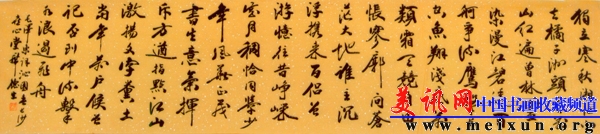 独立寒秋湘
去橘子洲头
山红遍层林
染漫江碧透
舸争流鹰
空鱼翔浅底
类霜天竞自由
怅寥廓问苍
茫大地谁主沉
浮携来百侣曾
游忆往昔峥嵘
岁月稠恰同学少
年风华正茂
书生意气挥
斥方遒指点江山
激扬文字粪土
当年万户侯曾
记否到中流击
水浪遏飞舟
毛泽东沁园春长沙
美讯网 中国书画收藏频道
www.meixun.org